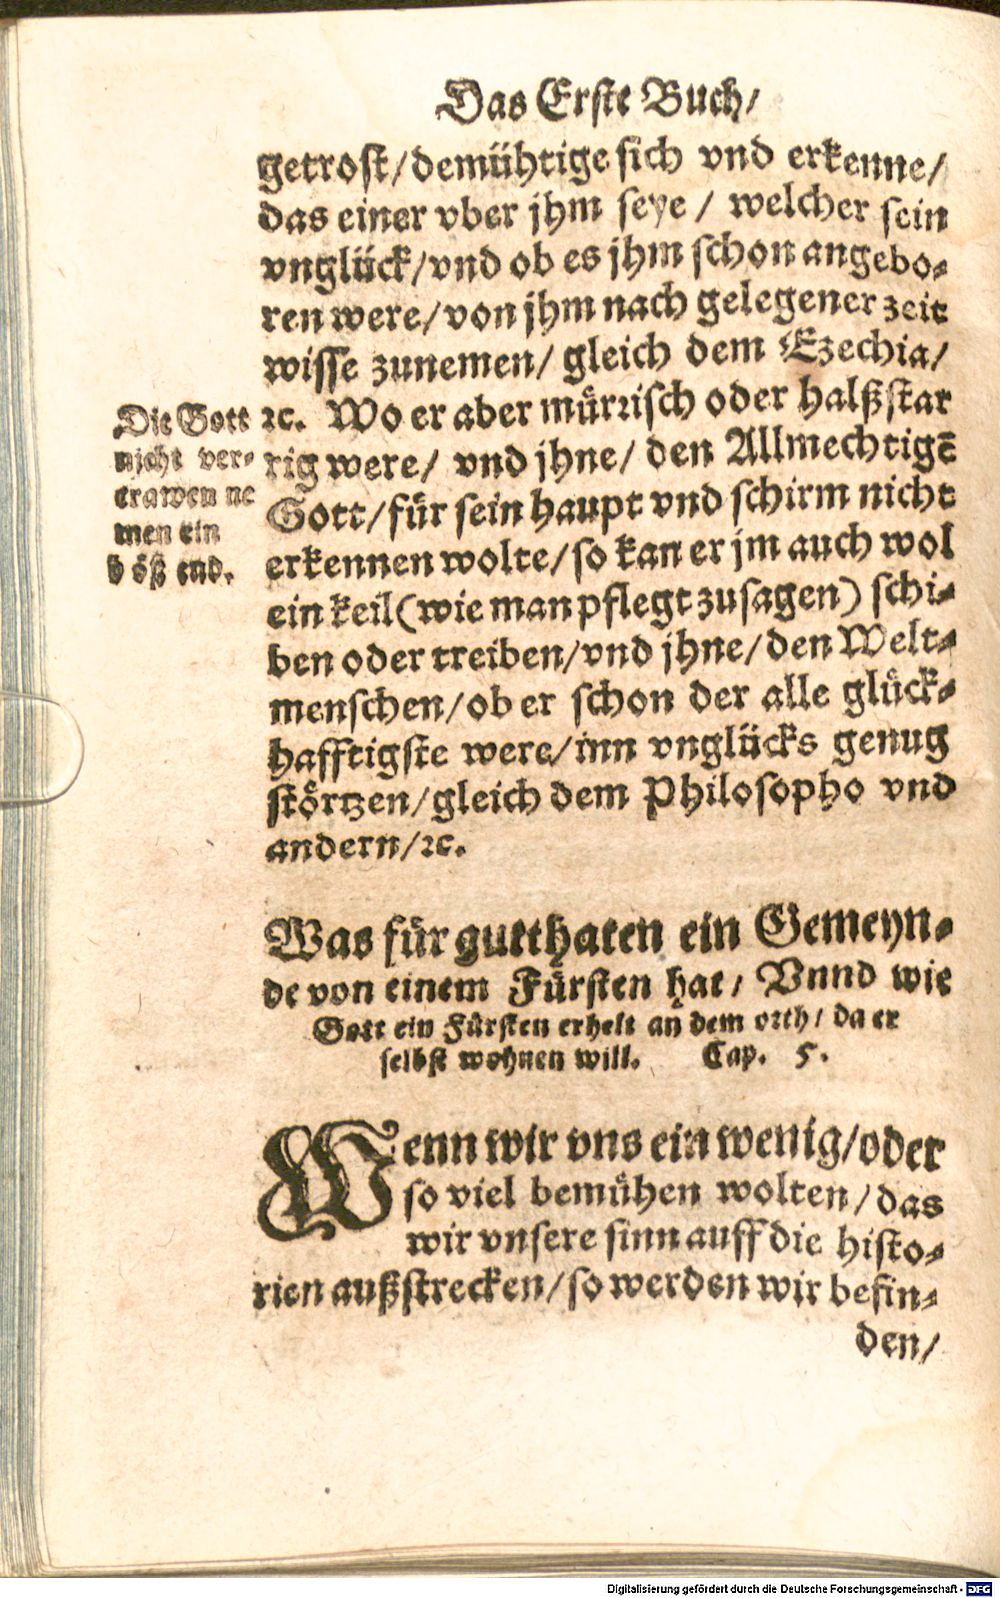 Das Erste Buch/
getrost/demühtige sich vnd erkenne/
das einer vber jhm seye/ welcher sein
vnglück/vnd ob es jhm schon angebo-
ren were/von jhm nach gelegener zeit
wisse zunemen/ gleich dem Ezechia/
ꝛc. Wo er aber mürꝛisch oder halßstar
rig were/ vnd jhne/ den Allmechtigē
Gott/für sein haupt vnd schirm nicht
erkennen wolte/so kan er jm auch wol
ein keil(wie man pflegt zusagen) schi-
ben oder treiben/vnd jhne/den Welt-
menschen/ob er schon der alle glück-
hafftigste were/inn vnglücks genug
störtzen/gleich dem Philosopho vnd
andern/ꝛc.
Die Gott
nicht ver-
trawen ne
men ein
böß end.
Was für gutthaten ein Gemeyn-
de von einem Fürsten hat/ Vnnd wie
Gott ein Fürsten erhelt an dem orth/ da er
selbst wohnen will. Cap. 5.
Wenn wir vns ein wenig/oder
so viel bemühen wolten/das
wir vnsere sinn auff die histo-
rien außstrecken/so werden wir befin-
den/
Digitalisierung gefördert durch die Deutsche Forschungsgemeinschaft - DFG